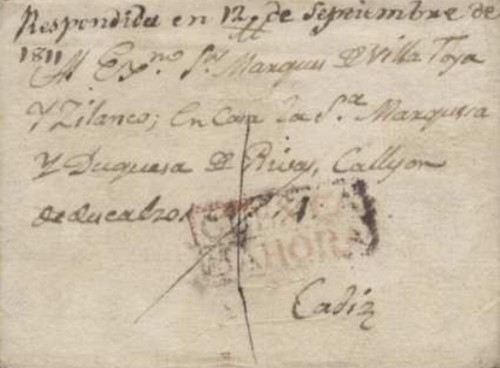 Respondida en 12 de Septiembre de
1811
Al Exmo Sr Marques de Villa Toya
Y Zilanco; en Casa la Sa Marquesa
Y Duquesa de Rivas, Callejon
de descalzos
BAHORA
Cadiz